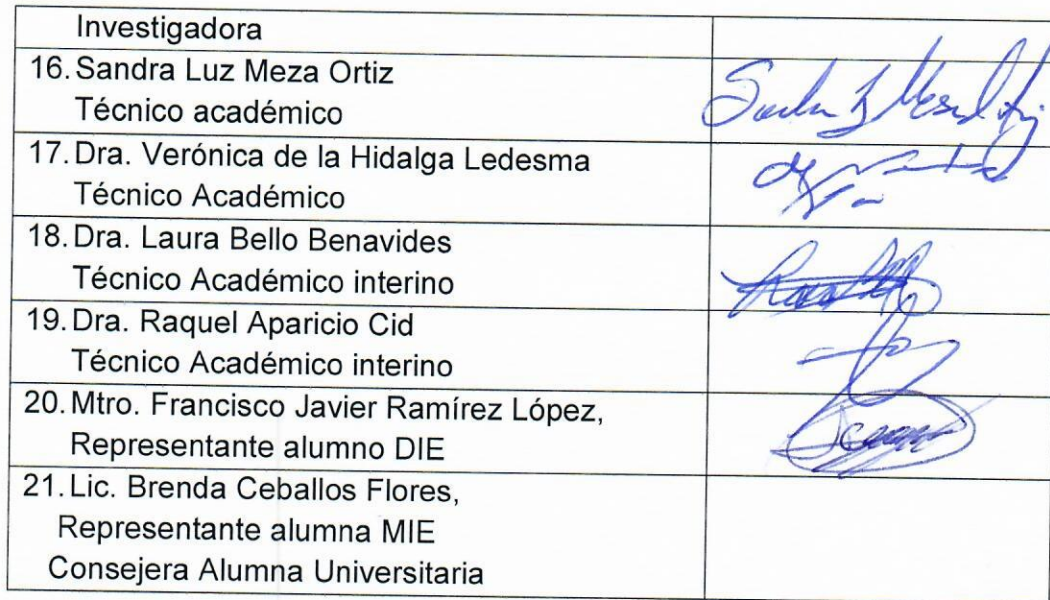 Investigadora
16. Sandra Luz Meza Ortiz
Técnico académico
17. Dra. Verónica de la Hidalga Ledesma
Técnico Académico
18. Dra. Laura Bello Benavides
Técnico Académico interino
19. Dra. Raquel Aparicio Cid
Técnico Académico interino
20. Mtro. Francisco Javier Ramírez López,
Representante alumno DIE
21. Lic. Brenda Ceballos Flores,
Representante alumna MIE
Consejera Alumna Universitaria